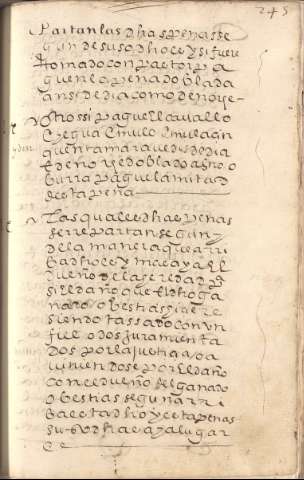 245
Partan las dhas penas se
gun de suso dho es y si fuere
tomado con pastor pa
gue la pena doblada
ansi de dia como de noche
Otrossi pague el cavallo
o yegua o mulo o mula çin
quenta maravedis de dia
E de noche doblado asno o
burra pague la mitad
desta pena
Las quales dhas penas
se rrepartan segun
de la manera que arri
ba dho es y mas aya el
dueño de la eredad
si el daño que el dho ga
nado o bestias hiziere
siendo tassado con un
fiel o dos juramenta
dos por la justiçia o a
viniendose por el daño
con el dueño del ganado
o bestias segun arri
ba esta dho y estas penas
su so dhas aya lugar